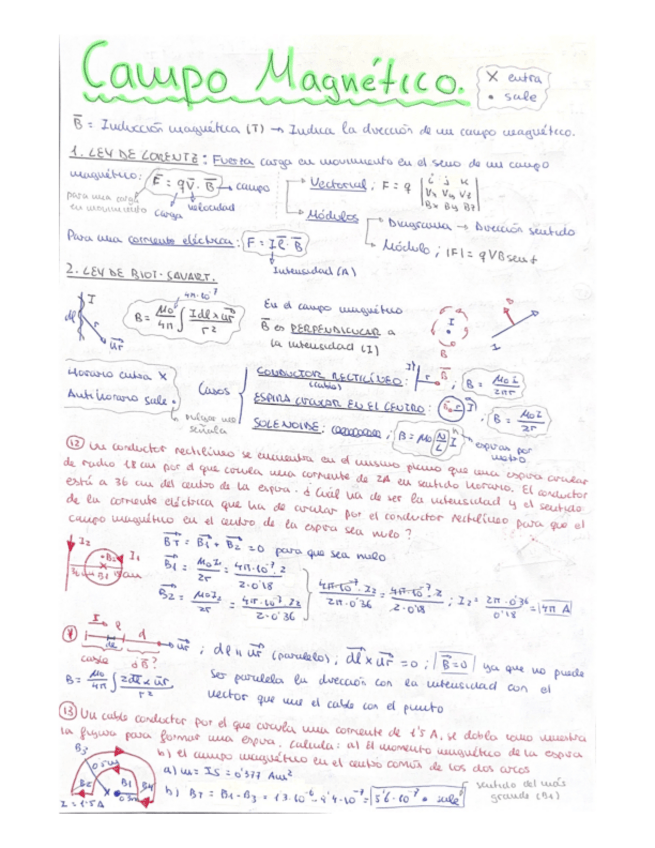 Campo Magnético.
X entra
• sale
B = Inducción magnética (T) → Indica la dirección de un campo magnético.
1. LEY DE LORENTZ: Fuerza carga en movimiento en el seno de un campo
magnético: F = qV·B → campo
para una carga en movimiento
carga
velocidad
Vectorial; F = q | i j k | Vx Vy Vz | Bx By Bz |
Módulos
Diagrama → Dirección sentido
Módulo; |F| = qVBsenα
Para una corriente eléctrica: F = Il·B
Intensidad (A)
2. LEY DE BIOT-SAVART.
4π·10⁻⁷
B = μ₀/4π ∫ Idl x ur / r²
I
dl
r
ur
En el campo magnético
B es PERPENDICULAR a
la intensidad (I)
I
B
Horario entra X
Antihorario sale •
Casos
CONDUCTOR RECTILÍNEO: (cable) I r B; B = μ₀I/2πr
ESPIRA CIRCULAR EN EL CENTRO: B r I; B = μ₀I/2r
SOLENOIDE; B = μ₀ N/L I
espiras por metro
12 Un conductor rectilíneo se encuentra en el mismo plano que una espira circular
de radio 18 cm por el que circula una corriente de 2A en sentido horario. El conductor
está a 36 cm del centro de la espira. ¿Cuál ha de ser la intensidad y el sentido
de la corriente eléctrica que ha de circular por el conductor rectilíneo para que el
campo magnético en el centro de la espira sea nulo?
I2
I1
B2
B1
BT = B1 + B2 = 0 para que sea nulo
B1 = μ₀I1/2r = 4π·10⁻⁷·2/2·0'18
B2 = μ₀I2/2r = 4π·10⁻⁷·I2/2·0'36
4π·10⁻⁷·I2/2π·0'36 = 4π·10⁻⁷·2/2·0'18; I2 = 2π·0'36/0'18 = 4π A
I l d
dl
cable
¿B?
ur; dl ∥ ur (paralelo); dl x ur = 0; B = 0 ya que no puede
ser paralela la dirección con la intensidad con el
vector que une el cable con el punto
B = μ₀/4π ∫ Idl x ur / r²
13 Un cable conductor por el que circula una corriente de 1'5 A, se dobla como muestra
la figura para formar una espira. Calcula: a) El momento magnético de la espira
b) el campo magnético en el centro común de los dos arcos
B3
0'5m
B2
B1
B4
0'3m
I = 1'5A
a) m = IS = 0'377 Am²
b) BT = B1 - B3 = 1'3·10⁻⁶ - 9'4·10⁻⁷ = 5'6·10⁻⁷ • sale
sentido del más
grande (B1)